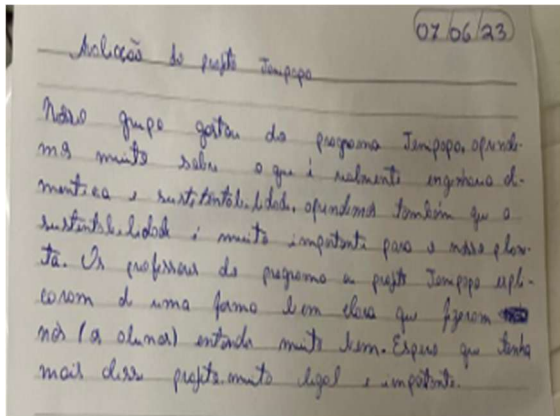 07/06/23
Avaliação do projeto Jenipapo
Nosso grupo gostou do programa Jenipapo, aprende-
mos muito sobre o que é realmente engenharia ali-
mentícia e sustentabilidade, aprendemos também que a
sustentabilidade é muito importante para o nosso plane-
ta. Os professores do programa ou projeto Jenipapo expli-
caram de uma forma bem clara que fizeram
nós (os alunos) entender muito bem. Espero que tenha
mais desse projeto muito legal e importante.